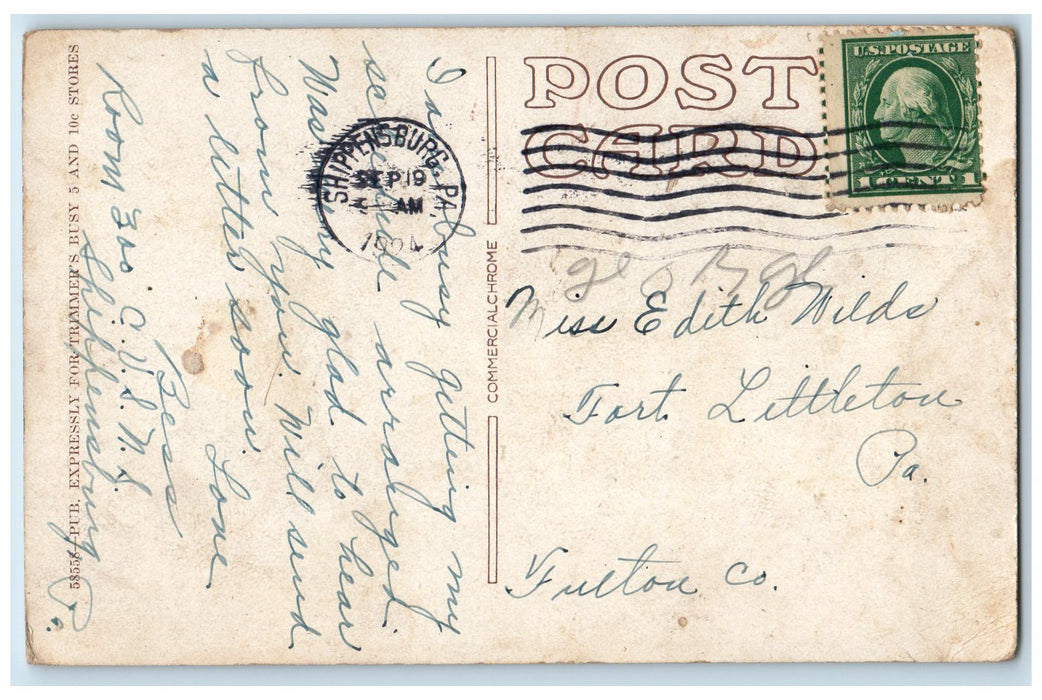 POST
CARD
U.S. POSTAGE
1 CENT 1
SHIPPENSBURG, PA.
SEP 19
AM
Miss Edith Wilds
Fort Littleton
Pa.
Fulton Co.
COMMERCIALCHROME
I'm busy getting my
schedule arranged.
Was very glad to hear
from you. Will send
a letter soon.
Love
Bess
Room 300 C.V.S.N.S.
Shippensburg Pa.
58558—PUB. EXPRESSLY FOR TRIMMER'S BUSY 5 AND 10c STORES